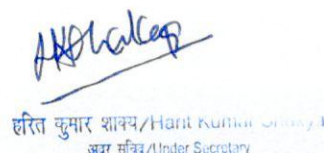 हरित कुमार शाक्य/Harit Kumar
अवर सचिव/Under Secretary